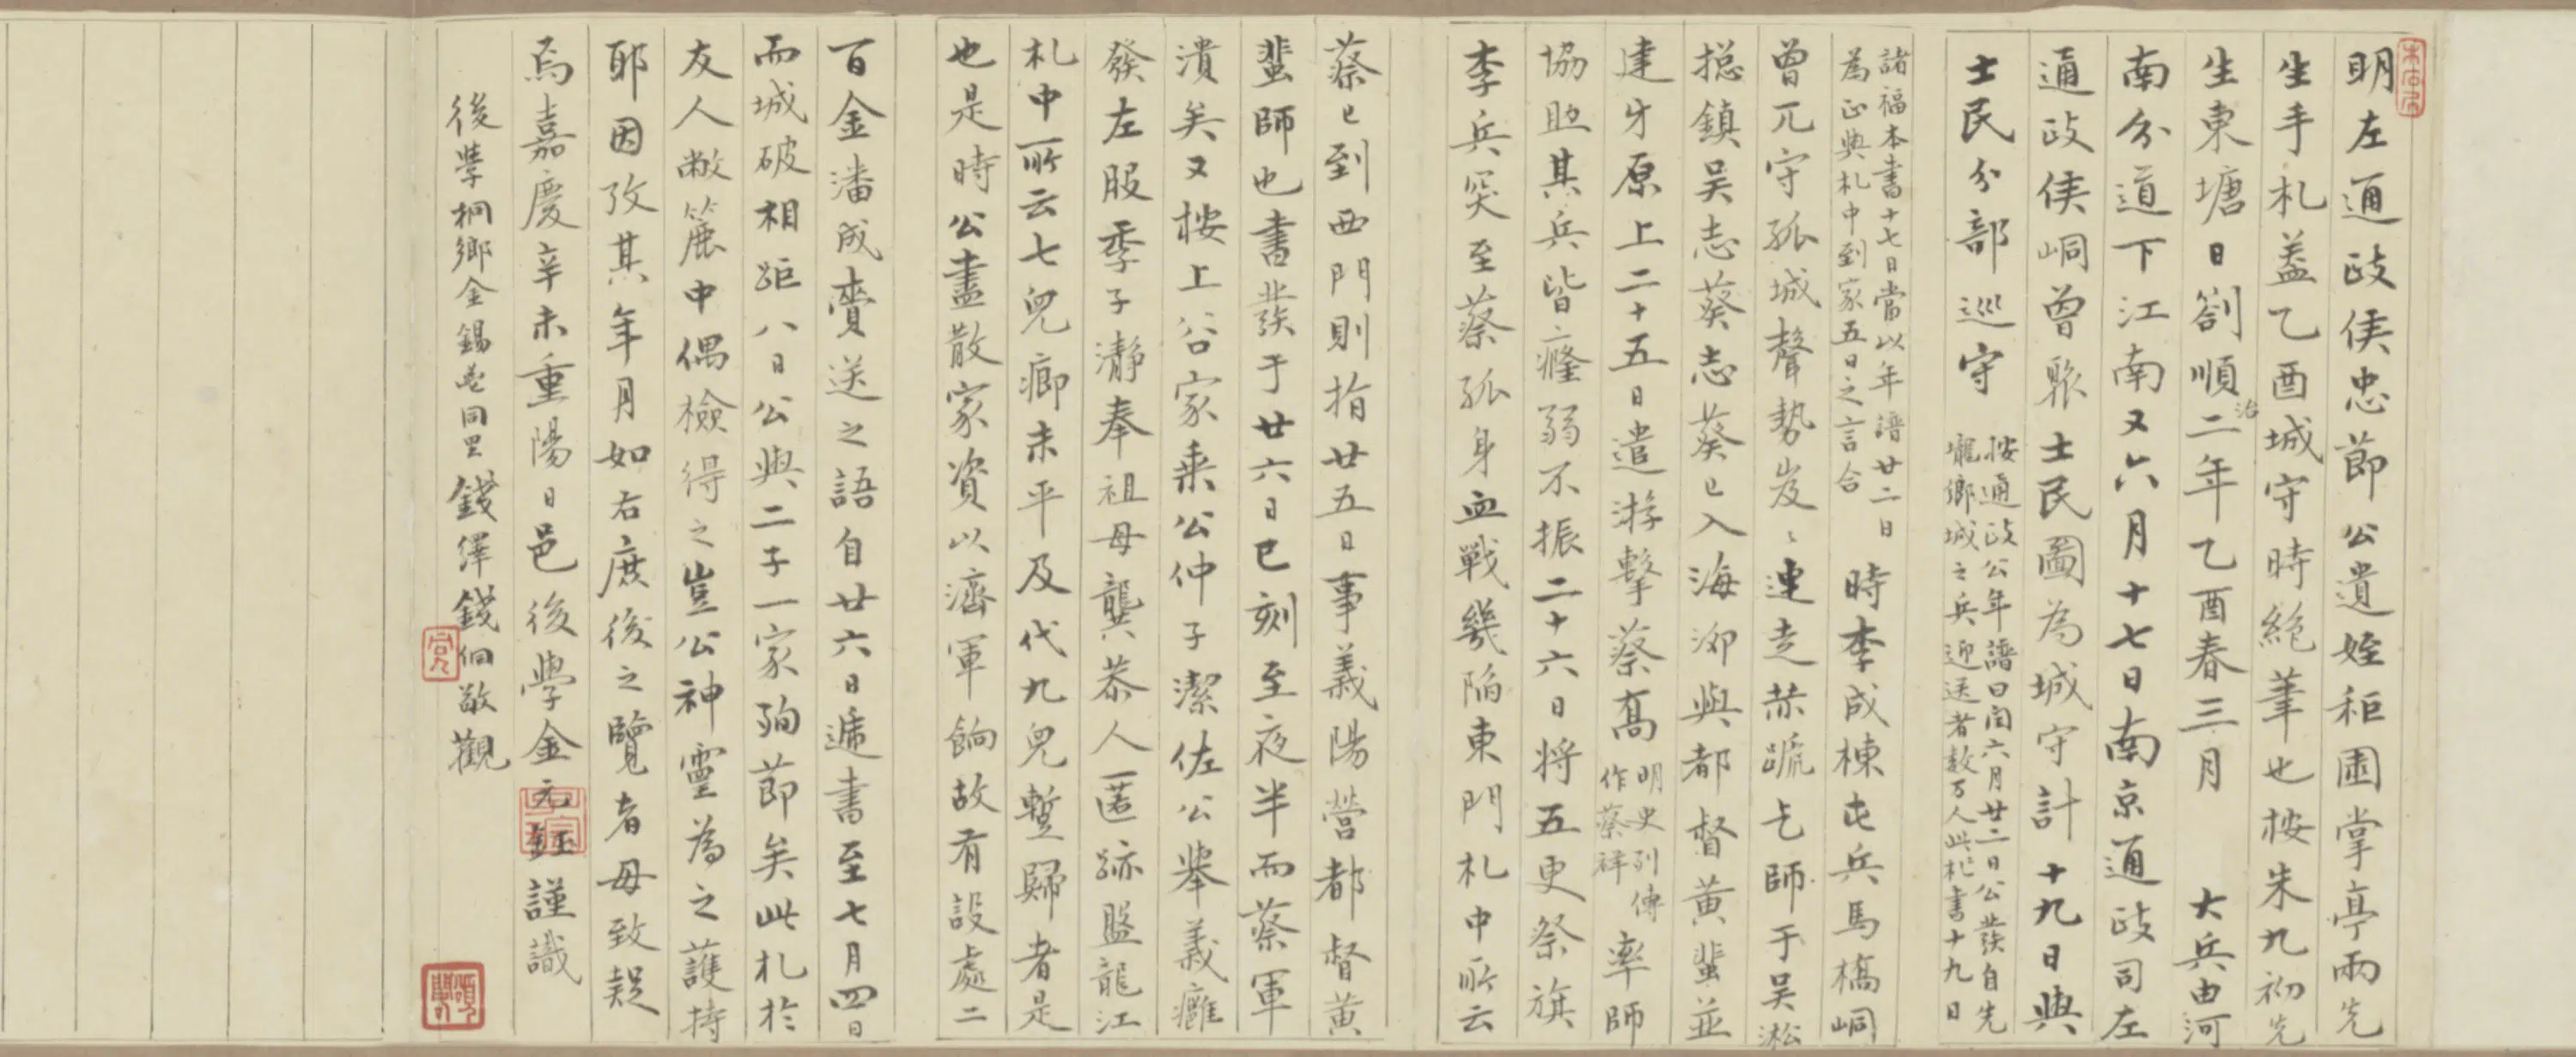 明左通政侯忠節公遺姪秬園掌亭兩先
生手札蓋乙酉城守時絕筆也按朱九初先
生東塘日劄順治二年乙酉春三月 大兵由河
南分道下江南又六月十七日南京通政司左
通政侯峒曾聚士民圖為城守計十九日與
士民分部巡守
按通政公年譜曰閏六月廿二日公發自先
壠鄉城之兵迎送者數万人此札書十九日
諸福本書十七日當以年譜廿二日
為正與札中到家五日之言合
時李成棟屯兵馬橋峒
曾兀守孤城聲勢岌〻連走赫蹏乞師于吳淞
摠鎮吳志葵志葵已入海泖與都督黃蜚並
建牙原上二十五日遣游擊蔡喬
明史列傳
作蔡祥
率師
協助其兵皆癃弱不振二十六日将五更祭旗
李兵突至蔡孤身血戰幾陷東門札中所云
蔡已到西門則指廿五日事義陽營都督黃
蜚師也書發于廿六日巳刻至夜半而蔡軍
潰矣又按上谷家乘公仲子潔佐公舉義癰
發左股季子瀞奉祖母龔恭人匿跡盤龍江
札中所云七兒癤未平及代九兒蹔歸者是
也是時公盡散家資以濟軍餉故有設處二
百金潘成賫送之語自廿六日遞書至七月四日
而城破相距八日公與二子一家殉節矣此札於
友人敝簏中偶檢得之豈公神靈為之護持
耶因攷其年月如右庶後之覽者毋致疑
焉嘉慶辛未重陽日邑後學金元鈺謹識
後學桐鄉金錫鬯同里錢繹錢侗敬觀